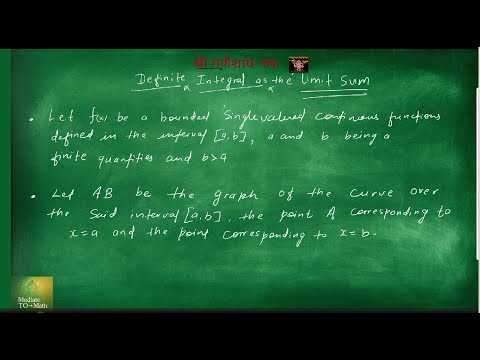 श्री गणेशाय नमः
Definite Integral as the Limit Sum
• Let f(x) be a bounded Single valued continuous functions
defined in the interval [a,b], a and b being a
finite quantities and b>a
• Let AB be the graph of the curve over
the Said interval [a,b], the point A corresponding to
x=a and the point corresponding to x=b.
Mediate
TO→Math